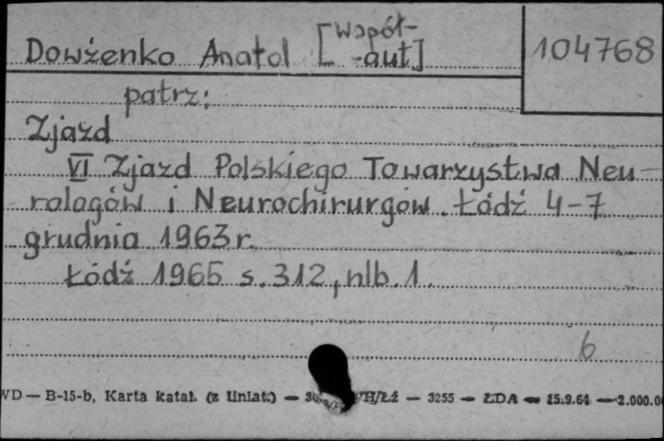 Dowżenko Anatol [Współ-
-aut]
104768
patrz:
Zjazd
VI Zjazd Polskiego Towarzystwa Neu-
rologów i Neurochirurgów. Łódź 4-7
grudnia 1963 r.
Łódź 1965 s. 312, nlb. 1.
6
WD — B-15-b, Karta katal. (z liniat.) — VH/Łż — 3255 — ŁDA — 15.9.64 — 2.000.0